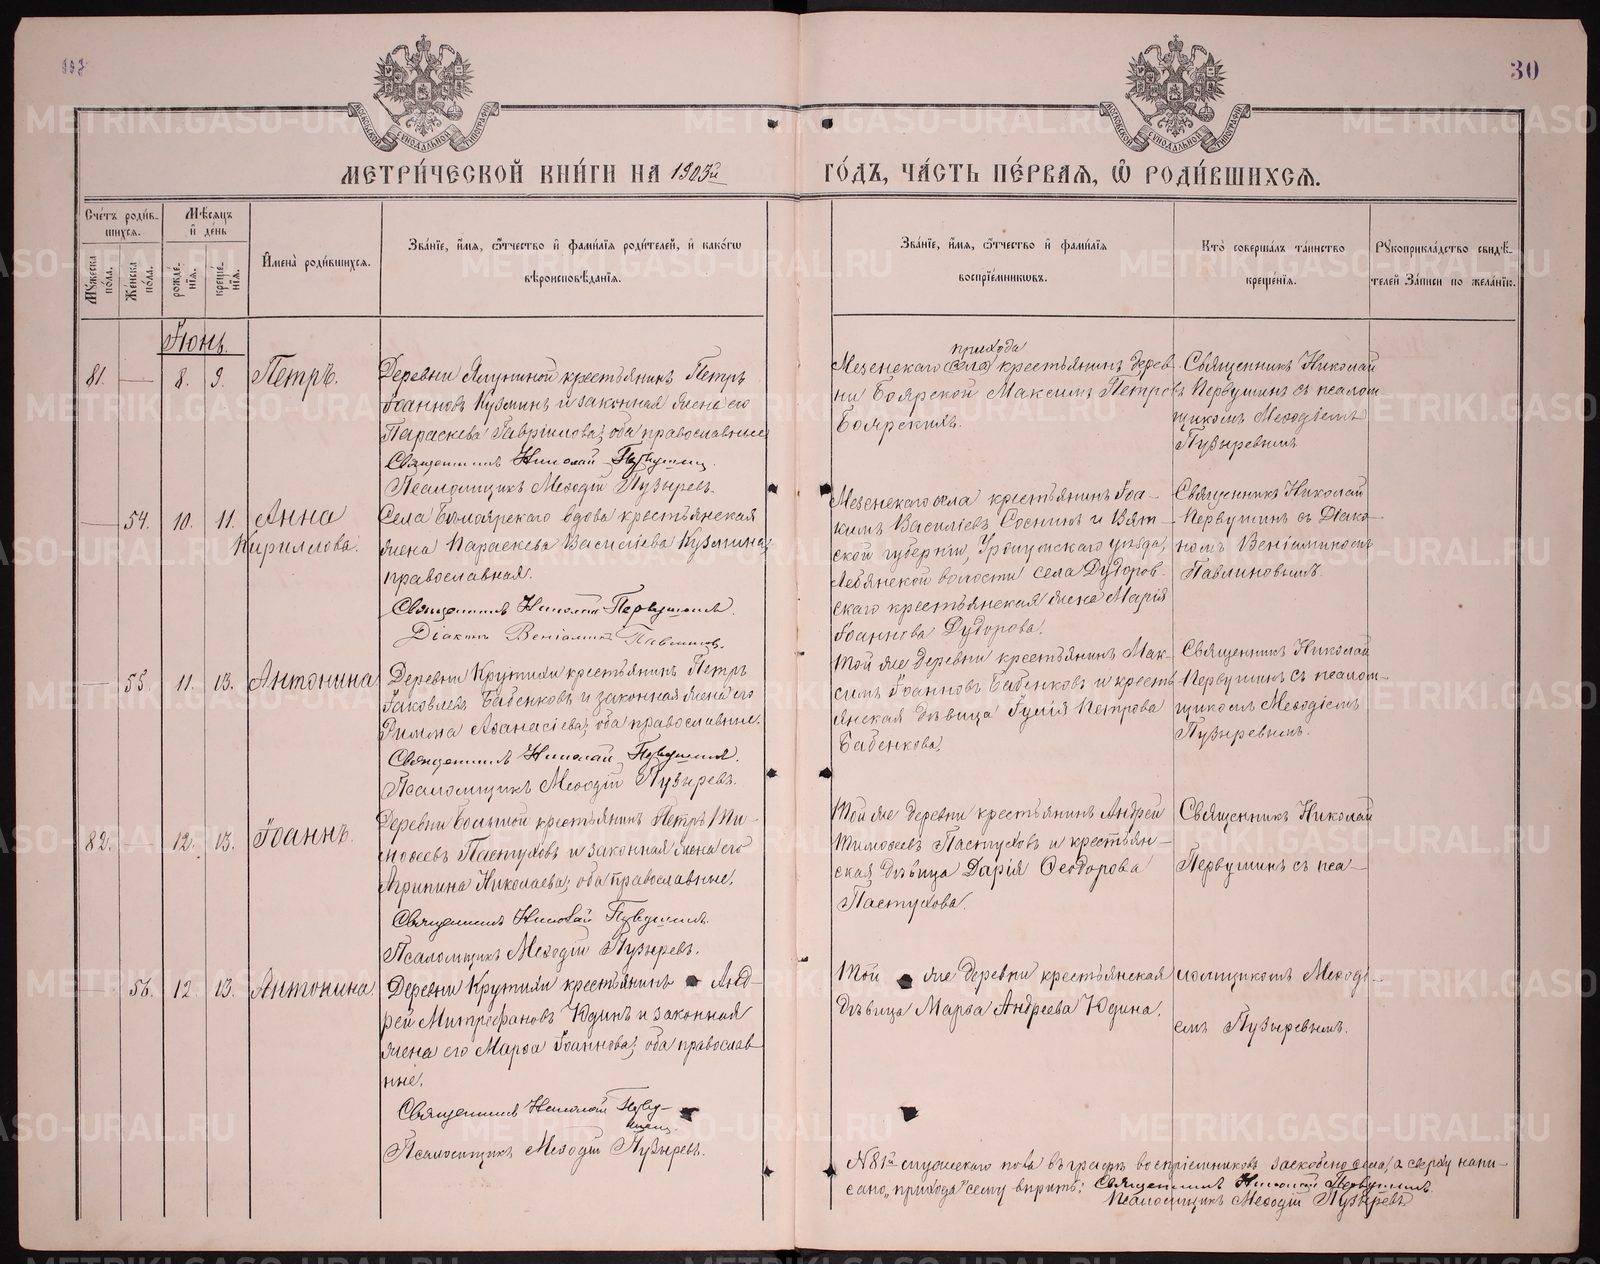 30
МЕТРИ́ЧЕСКОЙ КНИ́ГИ НА 1903й
ГО́ДЪ, ЧА́СТЬ ПЕ́РВАЯ, Ѡ҆ РОДИ́ВШИХСЯ.
Сче́тъ роди́в-
шихся.
Мѣ́сяцъ
и҆ де́нь
И҆мена̀ роди́вшихся.
Зва́нїе, и҆́мя, ѻ҆́тчество и҆ фами́лїя роди́телей, и҆ како́гѡ
вѣроисповѣ́данїя.
Мꙋ́жеска
по́ла.
Же́нска
по́ла.
рожде́-
нїя.
креще́-
нїя.
Зва́нїе, и҆́мя, ѻ҆́тчество и҆ фами́лїя
воспрїе́мникѡвъ.
Кто̀ соверша́лъ та́инство
креще́нїя.
Рꙋкоприкла́дство свидѣ́-
телей за́писи по жела́нїю.
Іюнь.
81. — 8. 9. Петръ.
Деревни Ялуниной крестьянинъ Петръ
Іоанновъ Кузминъ и законная жена его
Параскева Гавріилова; оба православные
Священникъ Николай Первушин
Псаломщикъ Меѳодій Пузыревъ.
прихода
Мезенскаго (села) крестьянинъ дерев-
ни Боярской Максимъ Петровъ
Боярскихъ.
Священникъ Николай
Первушинъ съ псалом
щикомъ Меѳодіемъ
Пузыревымъ
— 54. 10. 11. Анна
Кириллова.
Села Бѣлоярскаго вдова крестьянская
жена Параскева Василіева Кузмина;
православная.
Священникъ Николай Первушинъ.
Діаконъ Веніаминъ Павлиновъ.
Мезенскаго села крестьянинъ Іоа-
кимъ Василіевъ Соснинъ и Вят-
ской губерніи, Уржумскаго уѣзда,
Лебяжской волости села Дудоров-
скаго крестьянская жена Марія
Іоаннова Дудорова.
Священникъ Николай
Первушинъ съ Діако-
номъ Веніаминомъ
Павлиновымъ.
— 55. 11. 13. Антонина
Деревни Крутихи крестьянинъ Петръ
Іаковлевъ Бабенковъ и законная жена его
Римма Аѳанасіева; оба православные.
Священникъ Николай Первушинъ.
Псаломщикъ Меѳодій Пузыревъ.
Той же деревни крестьянинъ Мак-
симъ Іоанновъ Бабенковъ и кресть
янская дѣвица Іулія Петрова
Бабенкова.
Священникъ Николай
Первушинъ съ псалом-
щикомъ Меѳодіемъ
Пузыревымъ.
82. — 12. 13. Іоаннъ.
Деревни Большой крестьянинъ Петръ Ти-
моѳеевъ Пастуховъ и законная жена его
Агрипина Николаева; оба православные.
Священникъ Николай Первушинъ.
Псаломщикъ Меѳодій Пузыревъ.
Той же деревни крестьянинъ Андрей
Тимоѳеевъ Пастуховъ и крестьян-
ская дѣвица Дарія Ѳеодорова
Пастухова.
Священникъ Николай
Первушинъ съ пса-
— 56. 12. 13. Антонина.
Деревни Крутихи крестьянинъ Анд-
рей Митрофановъ Юдинъ и законная
жена его Марѳа Іоаннова; оба православ-
ные.
Священникъ Николай Перву-
шин.
Псаломщикъ Меѳодій Пузыревъ.
Той же деревни крестьянская
дѣвица Марѳа Андреева Юдина.
ломщикомъ Меѳоді-
емъ Пузыревымъ.
N 81й мужескаго пола въ графѣ воспріемниковъ заскоблено села, а сверху напи-
сано „прихода" сему вѣрить: Священникъ Николай Первушинъ.
Псаломщикъ Меѳодій Пузыревъ
METRIKI.GASO-URAL.RU